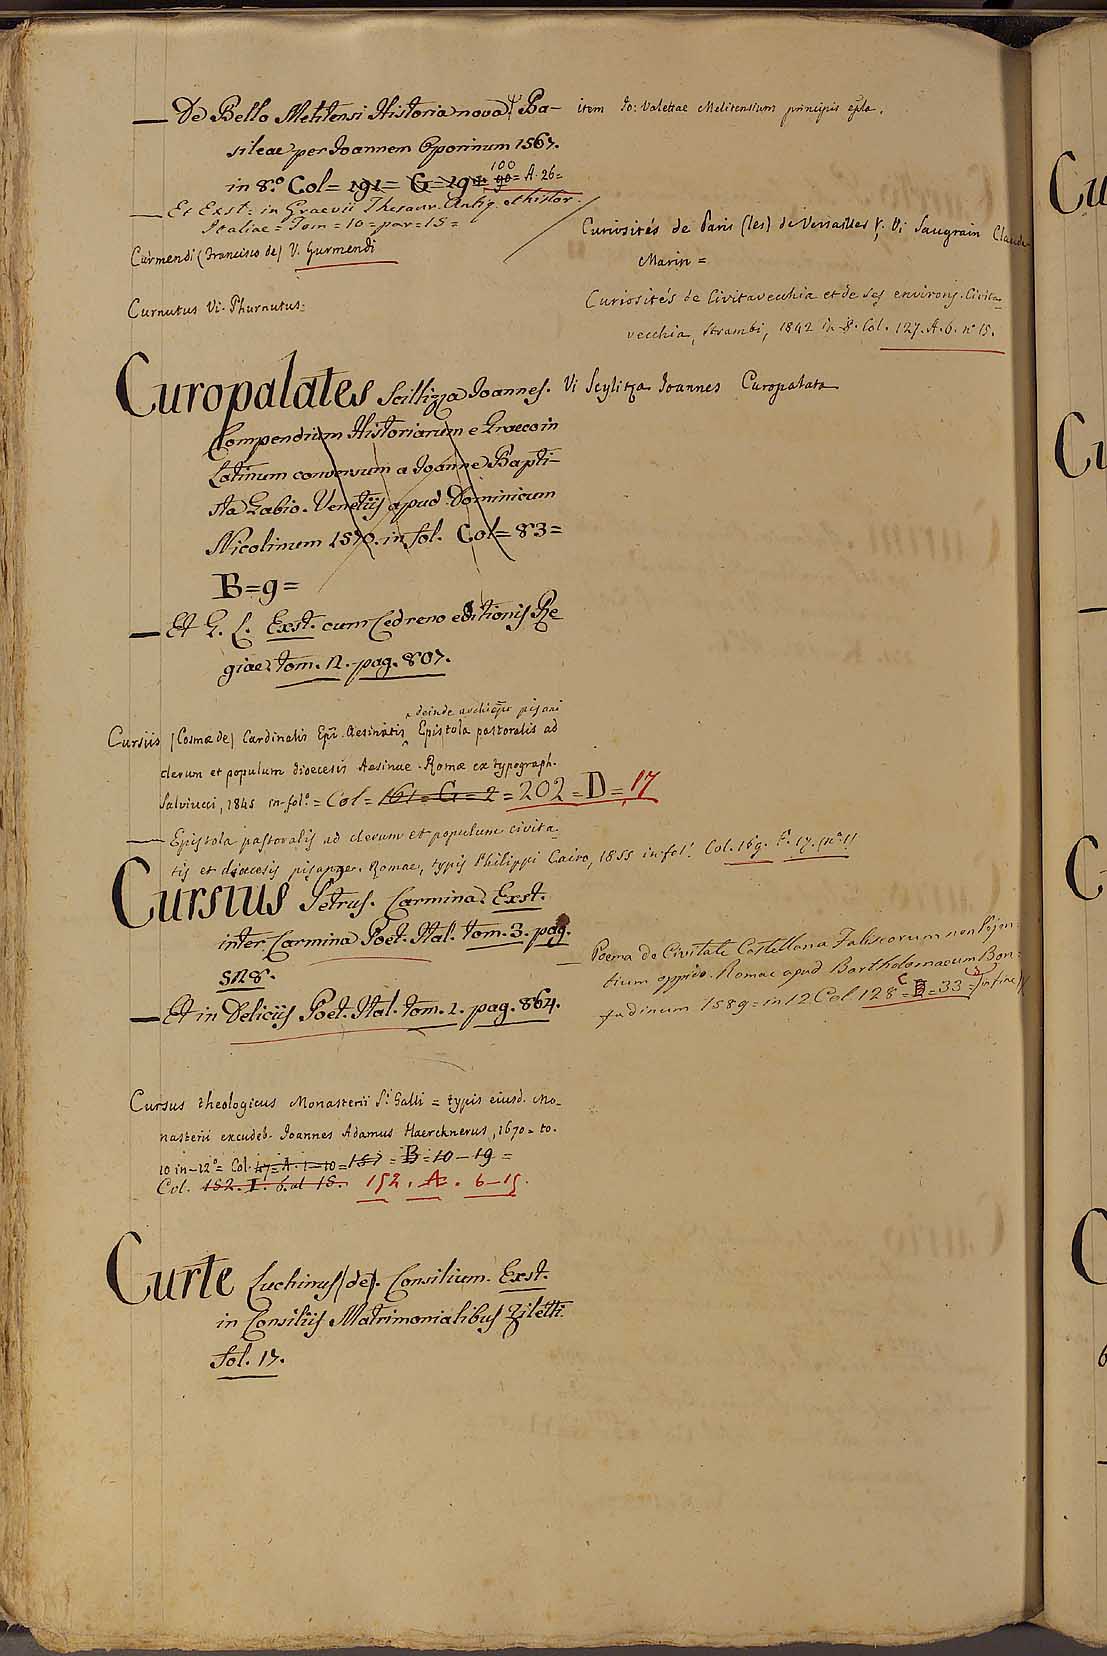 — De Bello Melitensi Historia nova, Ba-
item Jo: Valettae Melitensium principis epla.
sileae per Joannem Oporinum 1567.
in 8.º Col= 191= G=19= 100 90= A. 26=
— Et Exst: in Graevii Thesaur. Antiq. et histor.
Italiae= Tom=10=par=15=
Curmendi (Francisco de) V. Gurmendi
Curnutus Vi. Phurnutus.
Curiosités de Paris (les) de Versailles &. Vi Saugrain Claude
Marin =
Curiosités de Civitavecchia et de ses environs. Civita-
vecchia, Strambi, 1842 in-8º. Col. 127. A. 6. nº 15.
Curopalates Scillizza Joannes. Vi Scylitza Joannes Curopalata
Compendium Historiarum e Graeco in
Latinum conversum a Joanne Bapti-
sta Gabio. Venetiis apud Dominicum
Nicolinum 1570. in fol. Col= 83=
B=9=
— Et G. L. Exst. cum Cedreno editionis Re
giae tom. 12. pag. 807.
deinde archiepi pisani
Cursiis (Cosmae de) Cardinalis Epi. Aesinatis Epistola pastoralis ad
clerum et populum dioecesis Aesinae. Romae ex typograph.
Salviucci, 1845 in-folº.= Col= 161=G=2 = 202=D=17
— Epistola pastoralis ad clerum et populum civita-
tis et dioecesis pisanae. Romae, typis Philippi Cairo, 1855 in fol. Col. 169. F. 17. (nº 1)
Cursius Petrus. Carmina. Exst.
inter Carmina Poet. Ital. tom. 3. pag.
528.
— Et in Deliciis Poet. Ital. tom. 1. pag. 864.
— Poema de Civitate Castellana Faliscorum non Vejen-
tium oppido. Romae apud Bartholomaeum Bon-
fadinum 1589= in 12 Col 128= B=33= in fine
Cursus theologicus Monasterii S.i Galli = typis eiusd. Mo-
nasterii excudeb. Joannes Adamus Haercknerus, 1670= to.
10 in-12º= Col. 47=A. 1-10=157= B=10-19=
Col. 152. I. 6. al 15. 152. A. 6-15.
Curte Luchinus (de). Consilium. Exst.
in Consiliis Matrimonialibus Ziletti.
fol. 17.